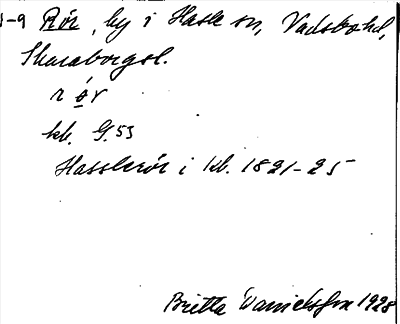 1-9 Rör, by i Hassle sn, Vadsbo hd,
Skaraborgs l.
r ó̱r
kb. G. 53
Hasslerör i kb. 1821-25
Britta Danielsson 1928